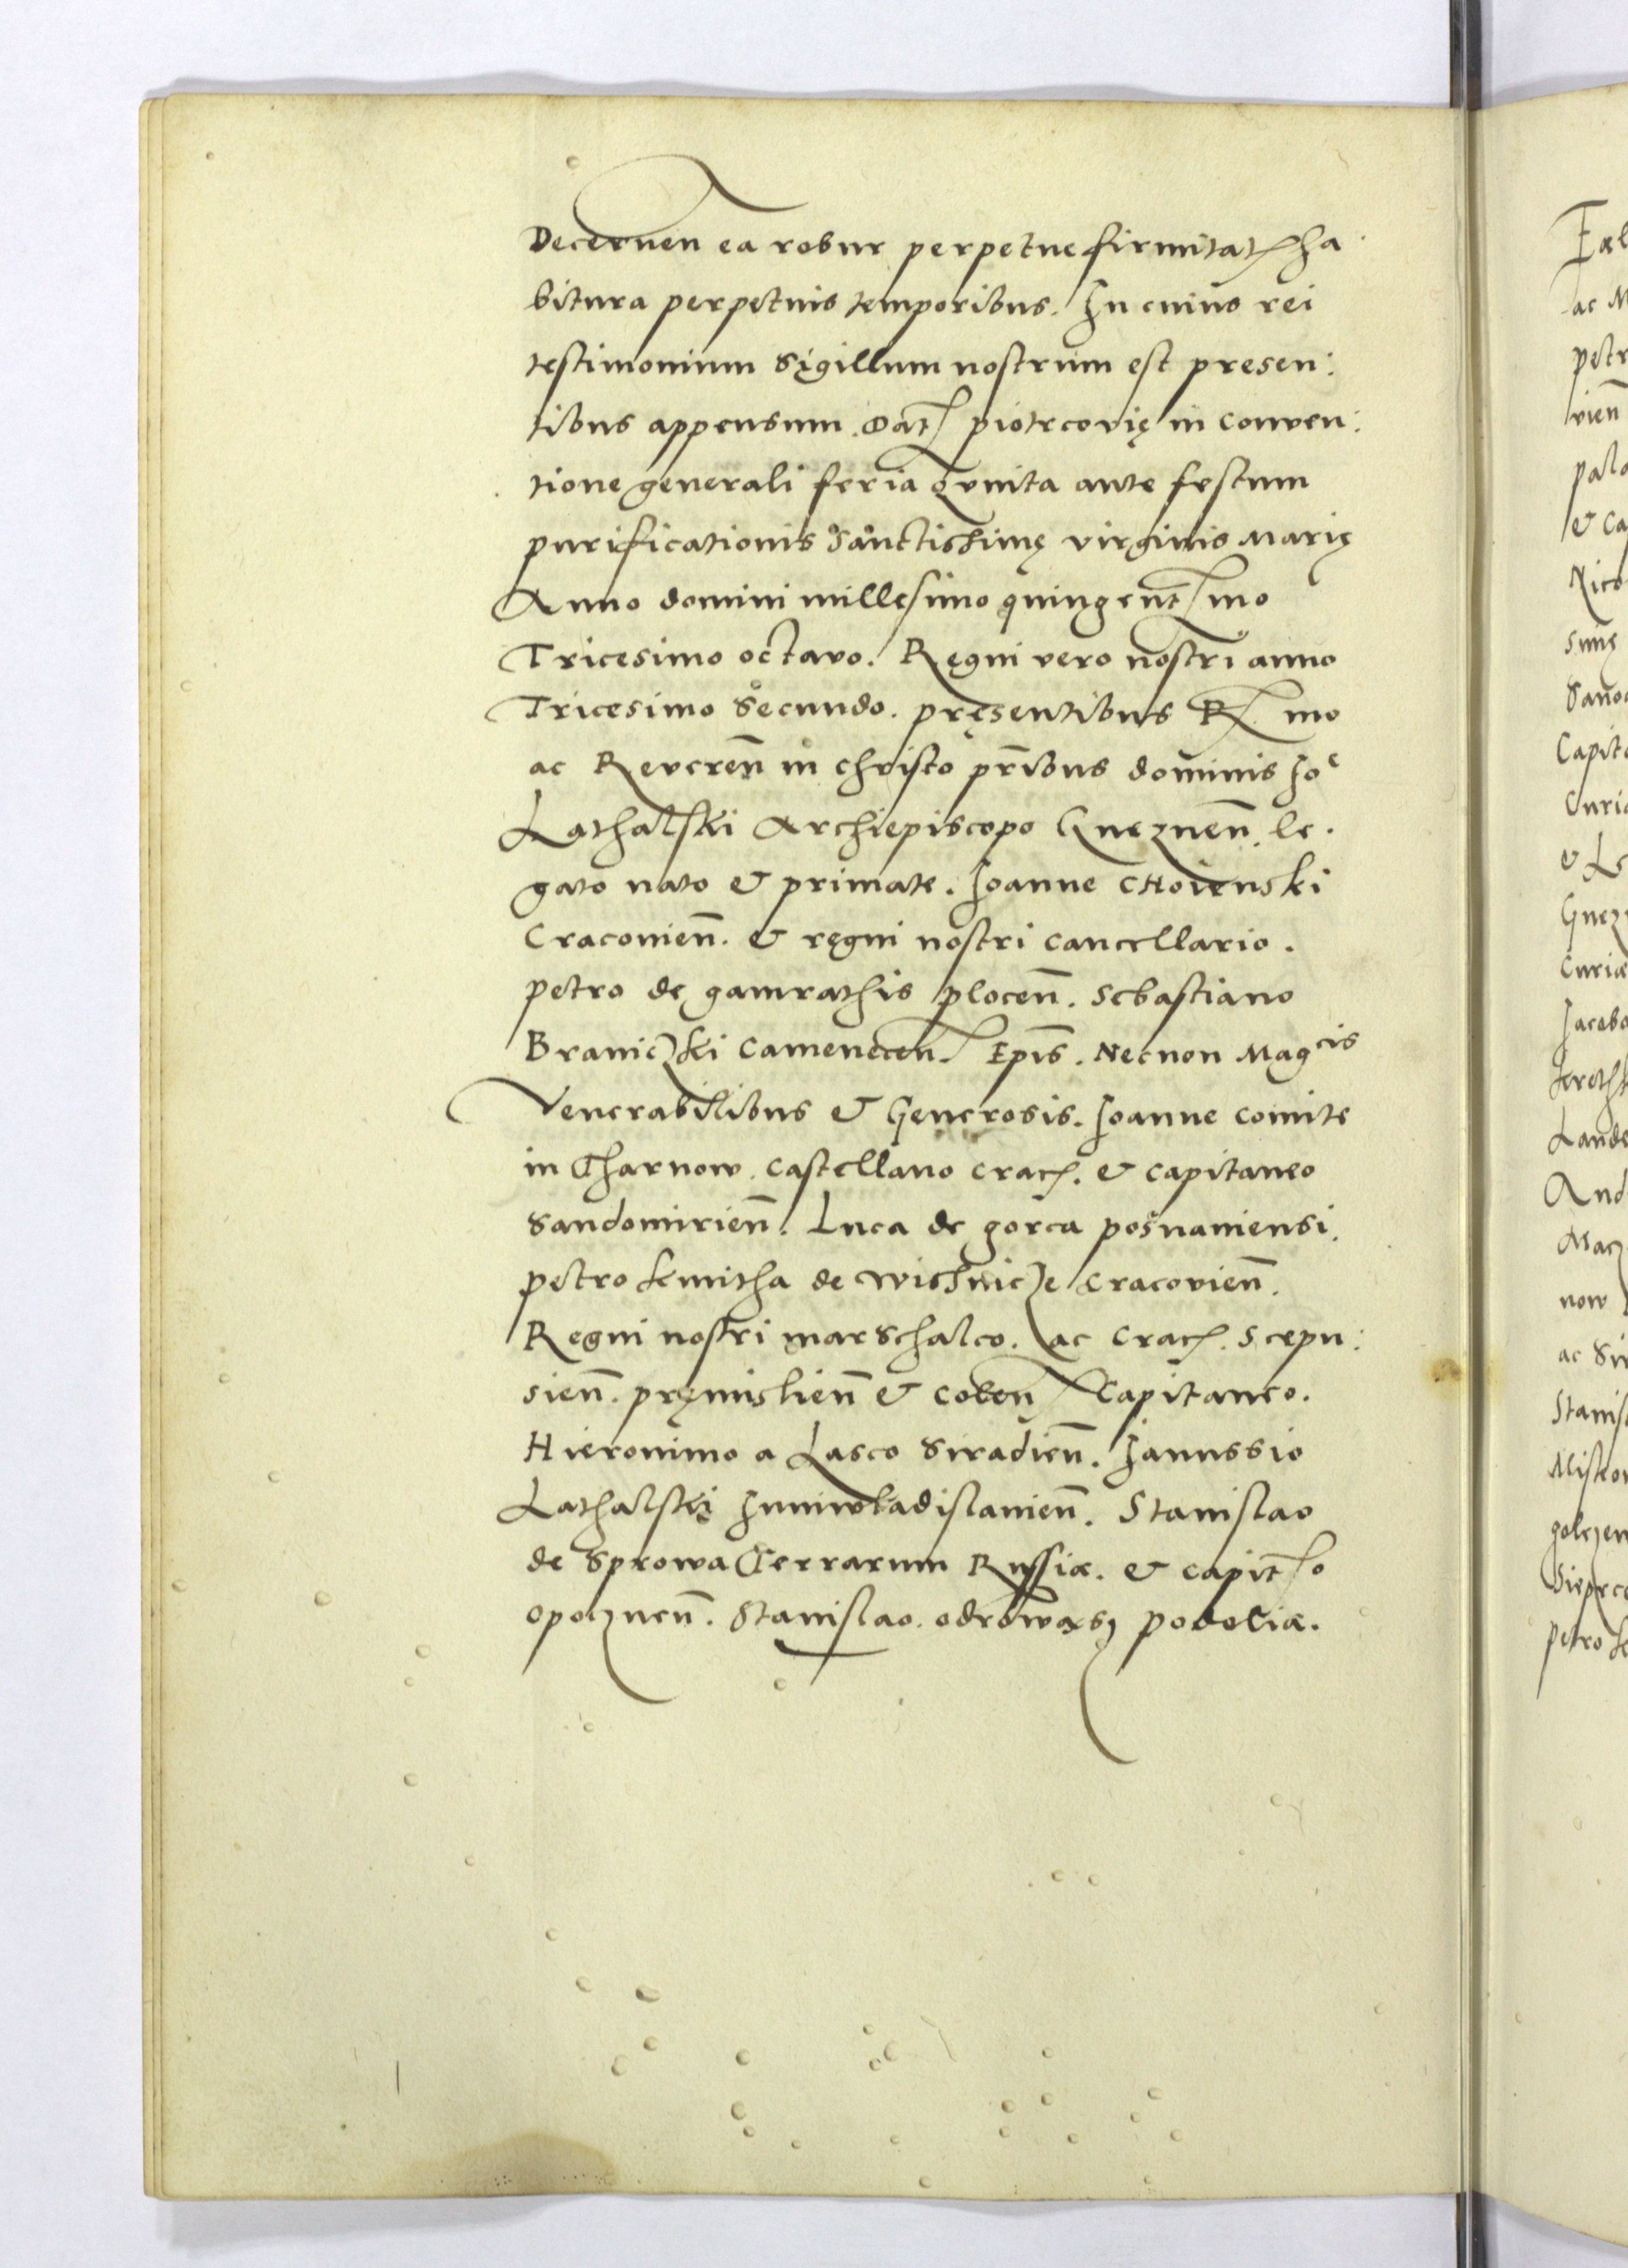 Decernen ea robur perpetue firmitat ha
bitura perpetuis temporibus. In cuius rei
testimonium Sigillum nostrum est presen:
tibus appensum. Dat piotrcovię in conven:
tione generali feria qvinta ante festum
purificationis Sanctissimę virginis Marię
Anno domini millesimo quingentmo
Tricesimo octavo. Regni vero nostri anno
Tricesimo Secundo. pręsentibus R mo
ac Reveren̄ in christo pr̄ibus dominis Joe
Lathalski Archiepiscopo Gneznen̄. le.
gato nato & primate. Joanne CHoienski
Cracovien̄. & regni nostri cancellario.
petro de gamrathis plocen̄. Sebastiano
Braniczki Camenecen. Epis̄. Necnon Magcis
Venerabilibus & Generosis. Joanne comite
in Tharnow. Castellano crac. & capitaneo
Sandomirien̄. Luca de gorca posnaniensi.
petro kmitha de Wisnicze cracovien̄.
Regni nostri marschalco. ac Crac. Scepu:
sien̄. pręmislien̄ & colen Capitaneo.
Hieronimo a Lasco Siradien̄. Janussio
Lathalski Juniwladislavien̄. Stanislao
de Sprowa Terrarum Russiæ. & capitto
opocznen̄. Stanislao. odrowąsz podoliæ.
Nico
Capit
Curiæ
now
ac Sir
Stanis
petro k